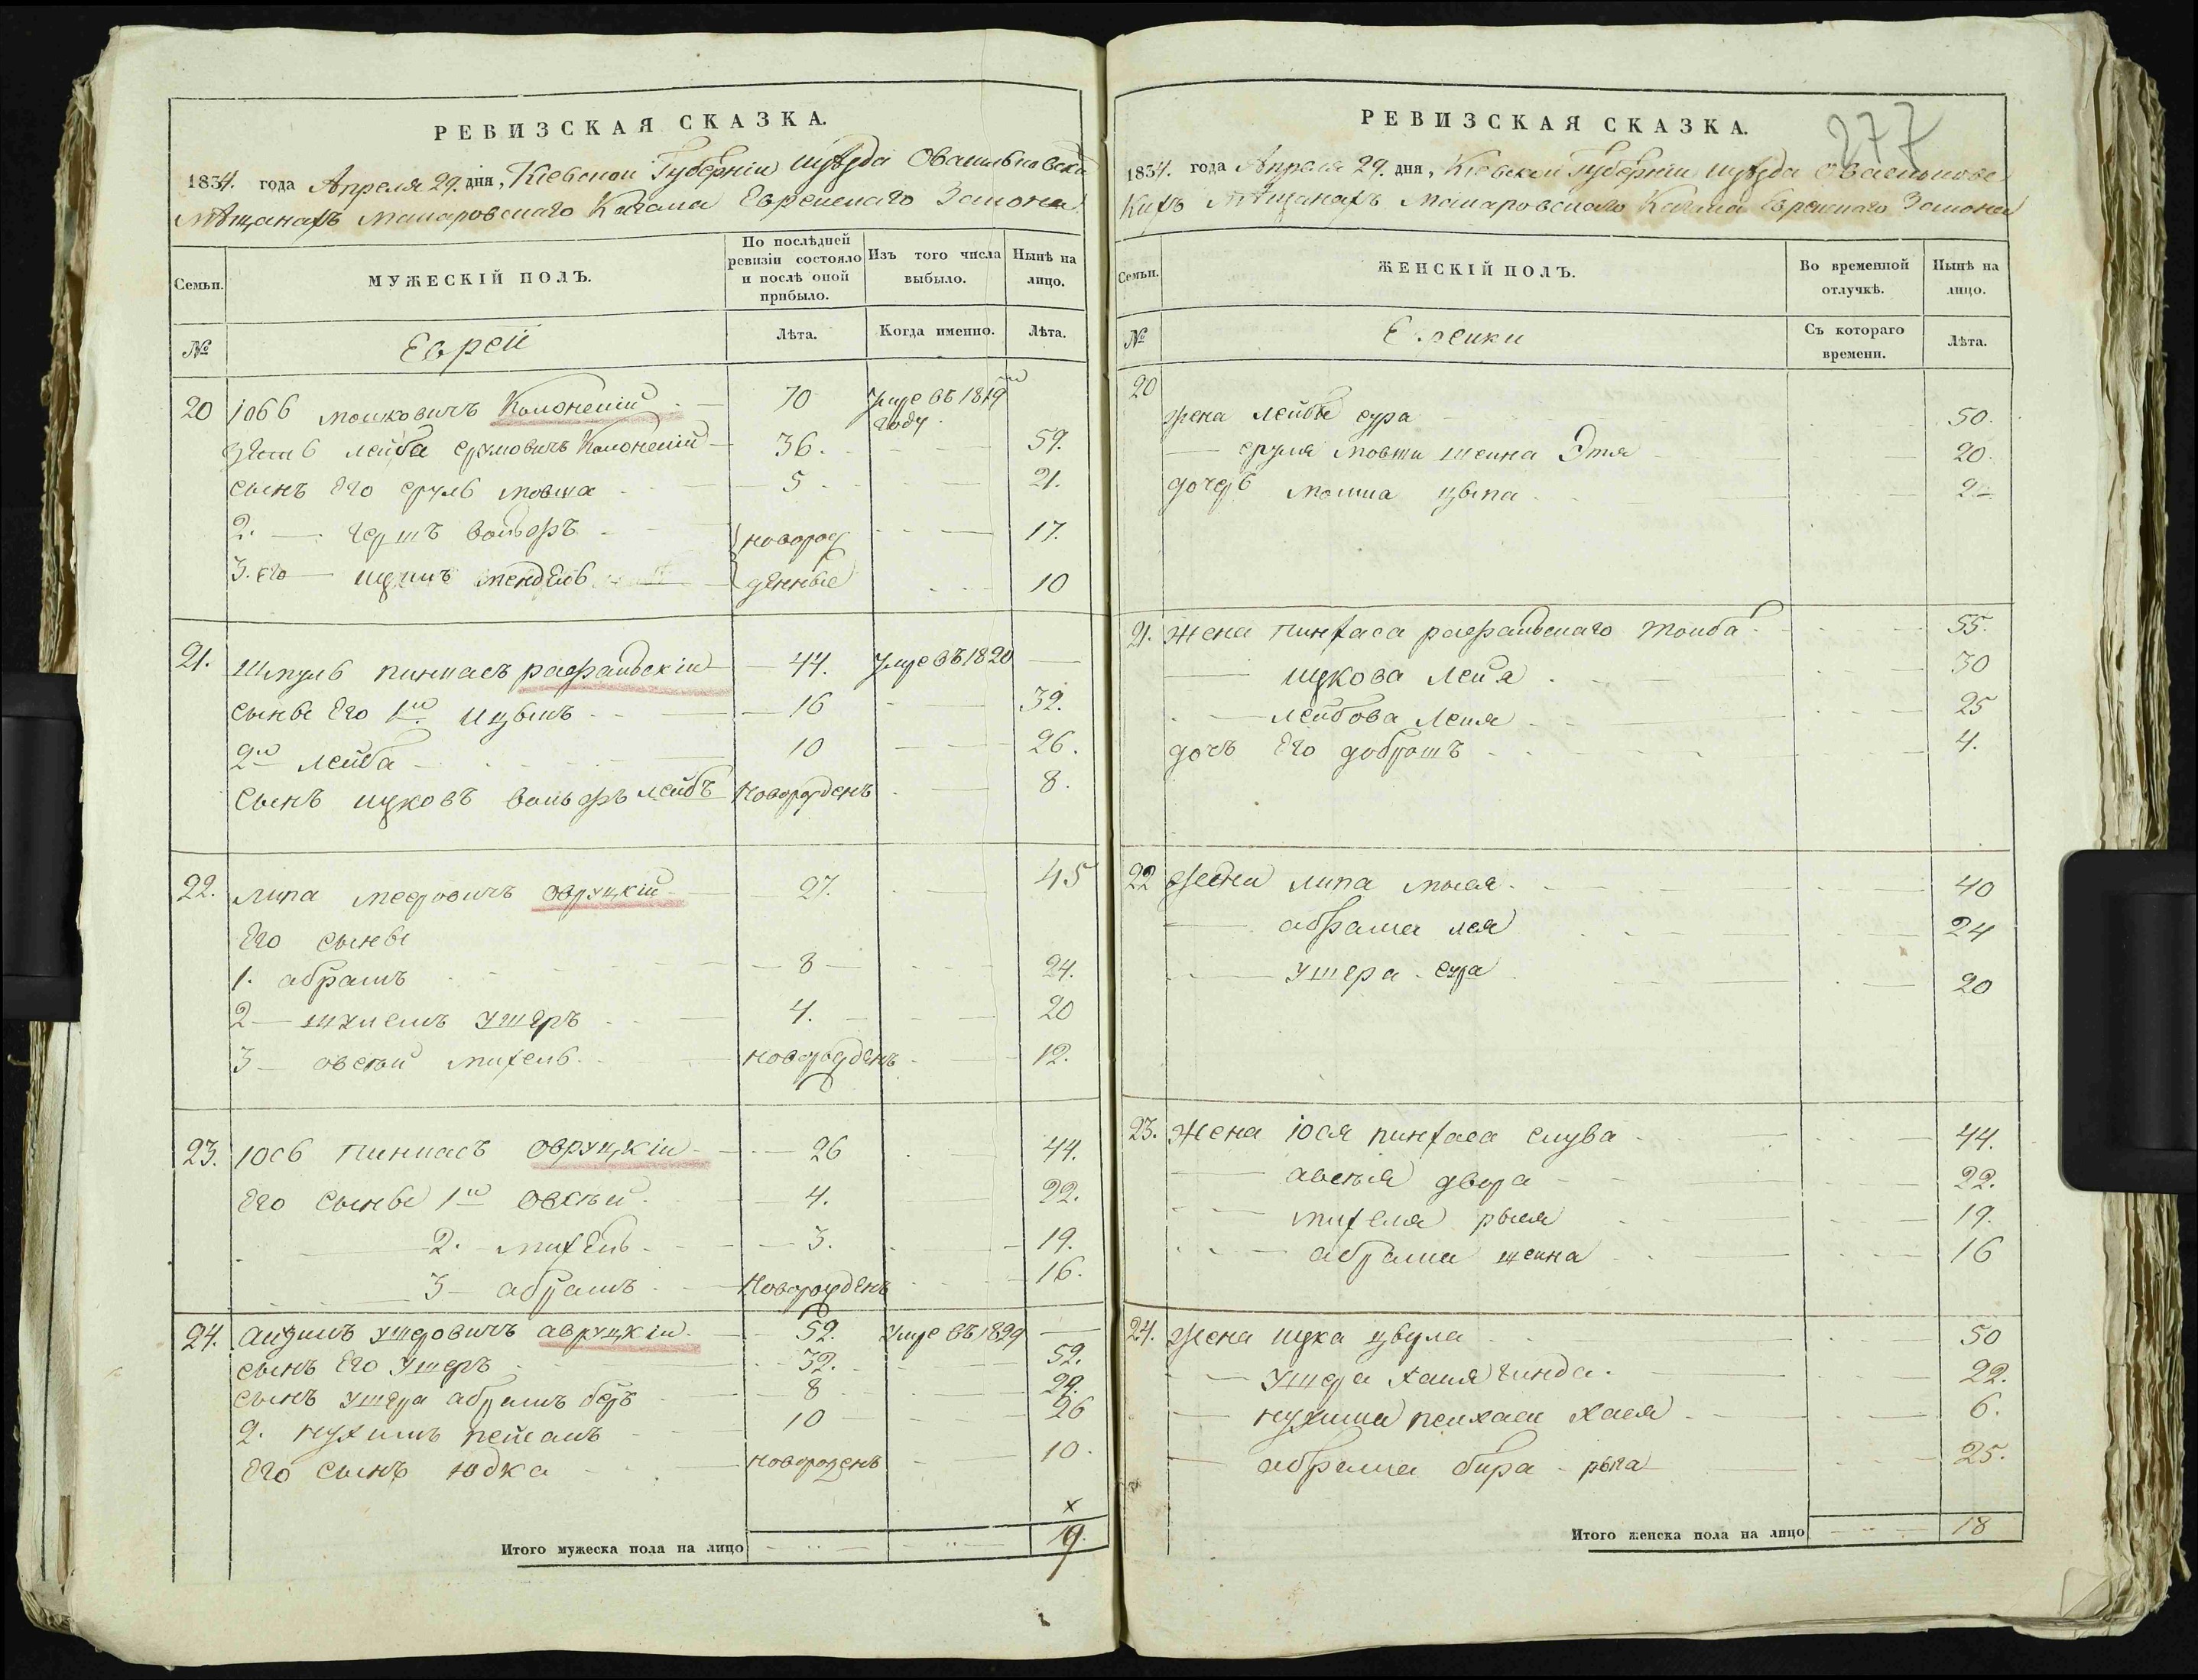 РЕВИЗСКАЯ СКАЗКА.
1834. года Апреля 29. дня, Кіевской Губерніи уѣзда
мѣщанахъ Макаровскаго Кагала Еврейскаго Закона
Семьи.
МУЖЕСКІЙ ПОЛЪ.
По послѣдней ревизіи состояло и послѣ оной прибыло.
Изъ того числа выбыло.
Нынѣ на лицо.
№
Еврей
Лѣта.
Когда именно.
Лѣта.
20 Мошковичъ 70 умре въ 1819м году
зять Лейба Срулювичъ 36. 59.
сынъ его Сруль Мовша 5 21.
2. — Гершъ Вольфъ новорож 17.
3. его — Мендель денные 10
21. Шмуль Пинхасъ Рафальскій 44. умре въ 1820
сыны его 1й Ицыкъ 16 32.
2й Лейба 10 26.
сынъ ицковъ Вольфъ Лейбъ новорожденъ 8.
22. Липа Меэровичъ Овруцкій 27. 45
его сыны
1. Абрамъ 8 24.
2 — Ушеръ 4. 20
3 — Овсѣй Михель новорожденъ 12.
23. Іось Пинхасъ Овруцкій 26 44.
его сыны 1й Овсѣй 4. 22.
2. Михель 3. 19.
3 — Абрамъ новорожденъ 16.
24. Айзикъ Ушеровичъ Авруцкій 52. умре въ 1829
сынъ его Ушеръ 32. 52.
сынъ Ушера Абрамъ Беръ 8 29.
2. Нухимъ Пейсахъ 10 26
его сынъ Юдка новорозденъ 10.
х
Итого мужеска пола на лицо 19.
277
РЕВИЗСКАЯ СКАЗКА.
1834. года Апреля 29. дня, Кіевской Губерніи уѣзда
кихъ мѣщанахъ Макаровскаго Кагала Еврейскаго Закона
Семьи.
ЖЕНСКІЙ ПОЛЪ.
Во временной отлучкѣ.
Нынѣ на лицо.
№
Еврейки
Съ котораго времени.
Лѣта.
20
жена Лейбы Сура 50.
— Сруля Мовши Шейна Этя 20.
дочерь
21. Жена Пинхаса Рафальскаго Тойба 55.
— Ицкова Лея 30
— Лейбова Лея 25
дочь его Добрышъ 4.
22 жена Липа 40
— Абрама Лея 24
— Ушера Сура 20
23. Жена Іося Пинхаса Слува 44.
— Авсѣя Двора 22.
— Михеля Рыся 19.
— Абрама Шейна 16
24. жена Ицка 50
— Ушера Хая Гинда 22.
— Нухима Пейхаса Хася 6.
— Абрама Бира 25.
Итого женска пола на лицо 18